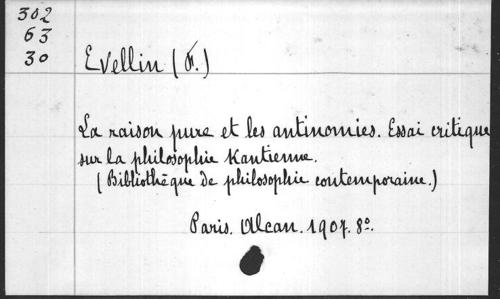 302
63
30
Evellin (F.)
La raison pure et les antinomies. Essai critique
sur la philosophie Kantienne.
(Bibliothèque de philosophie contemporaine.)
Paris. Alcan. 1907. 8º.